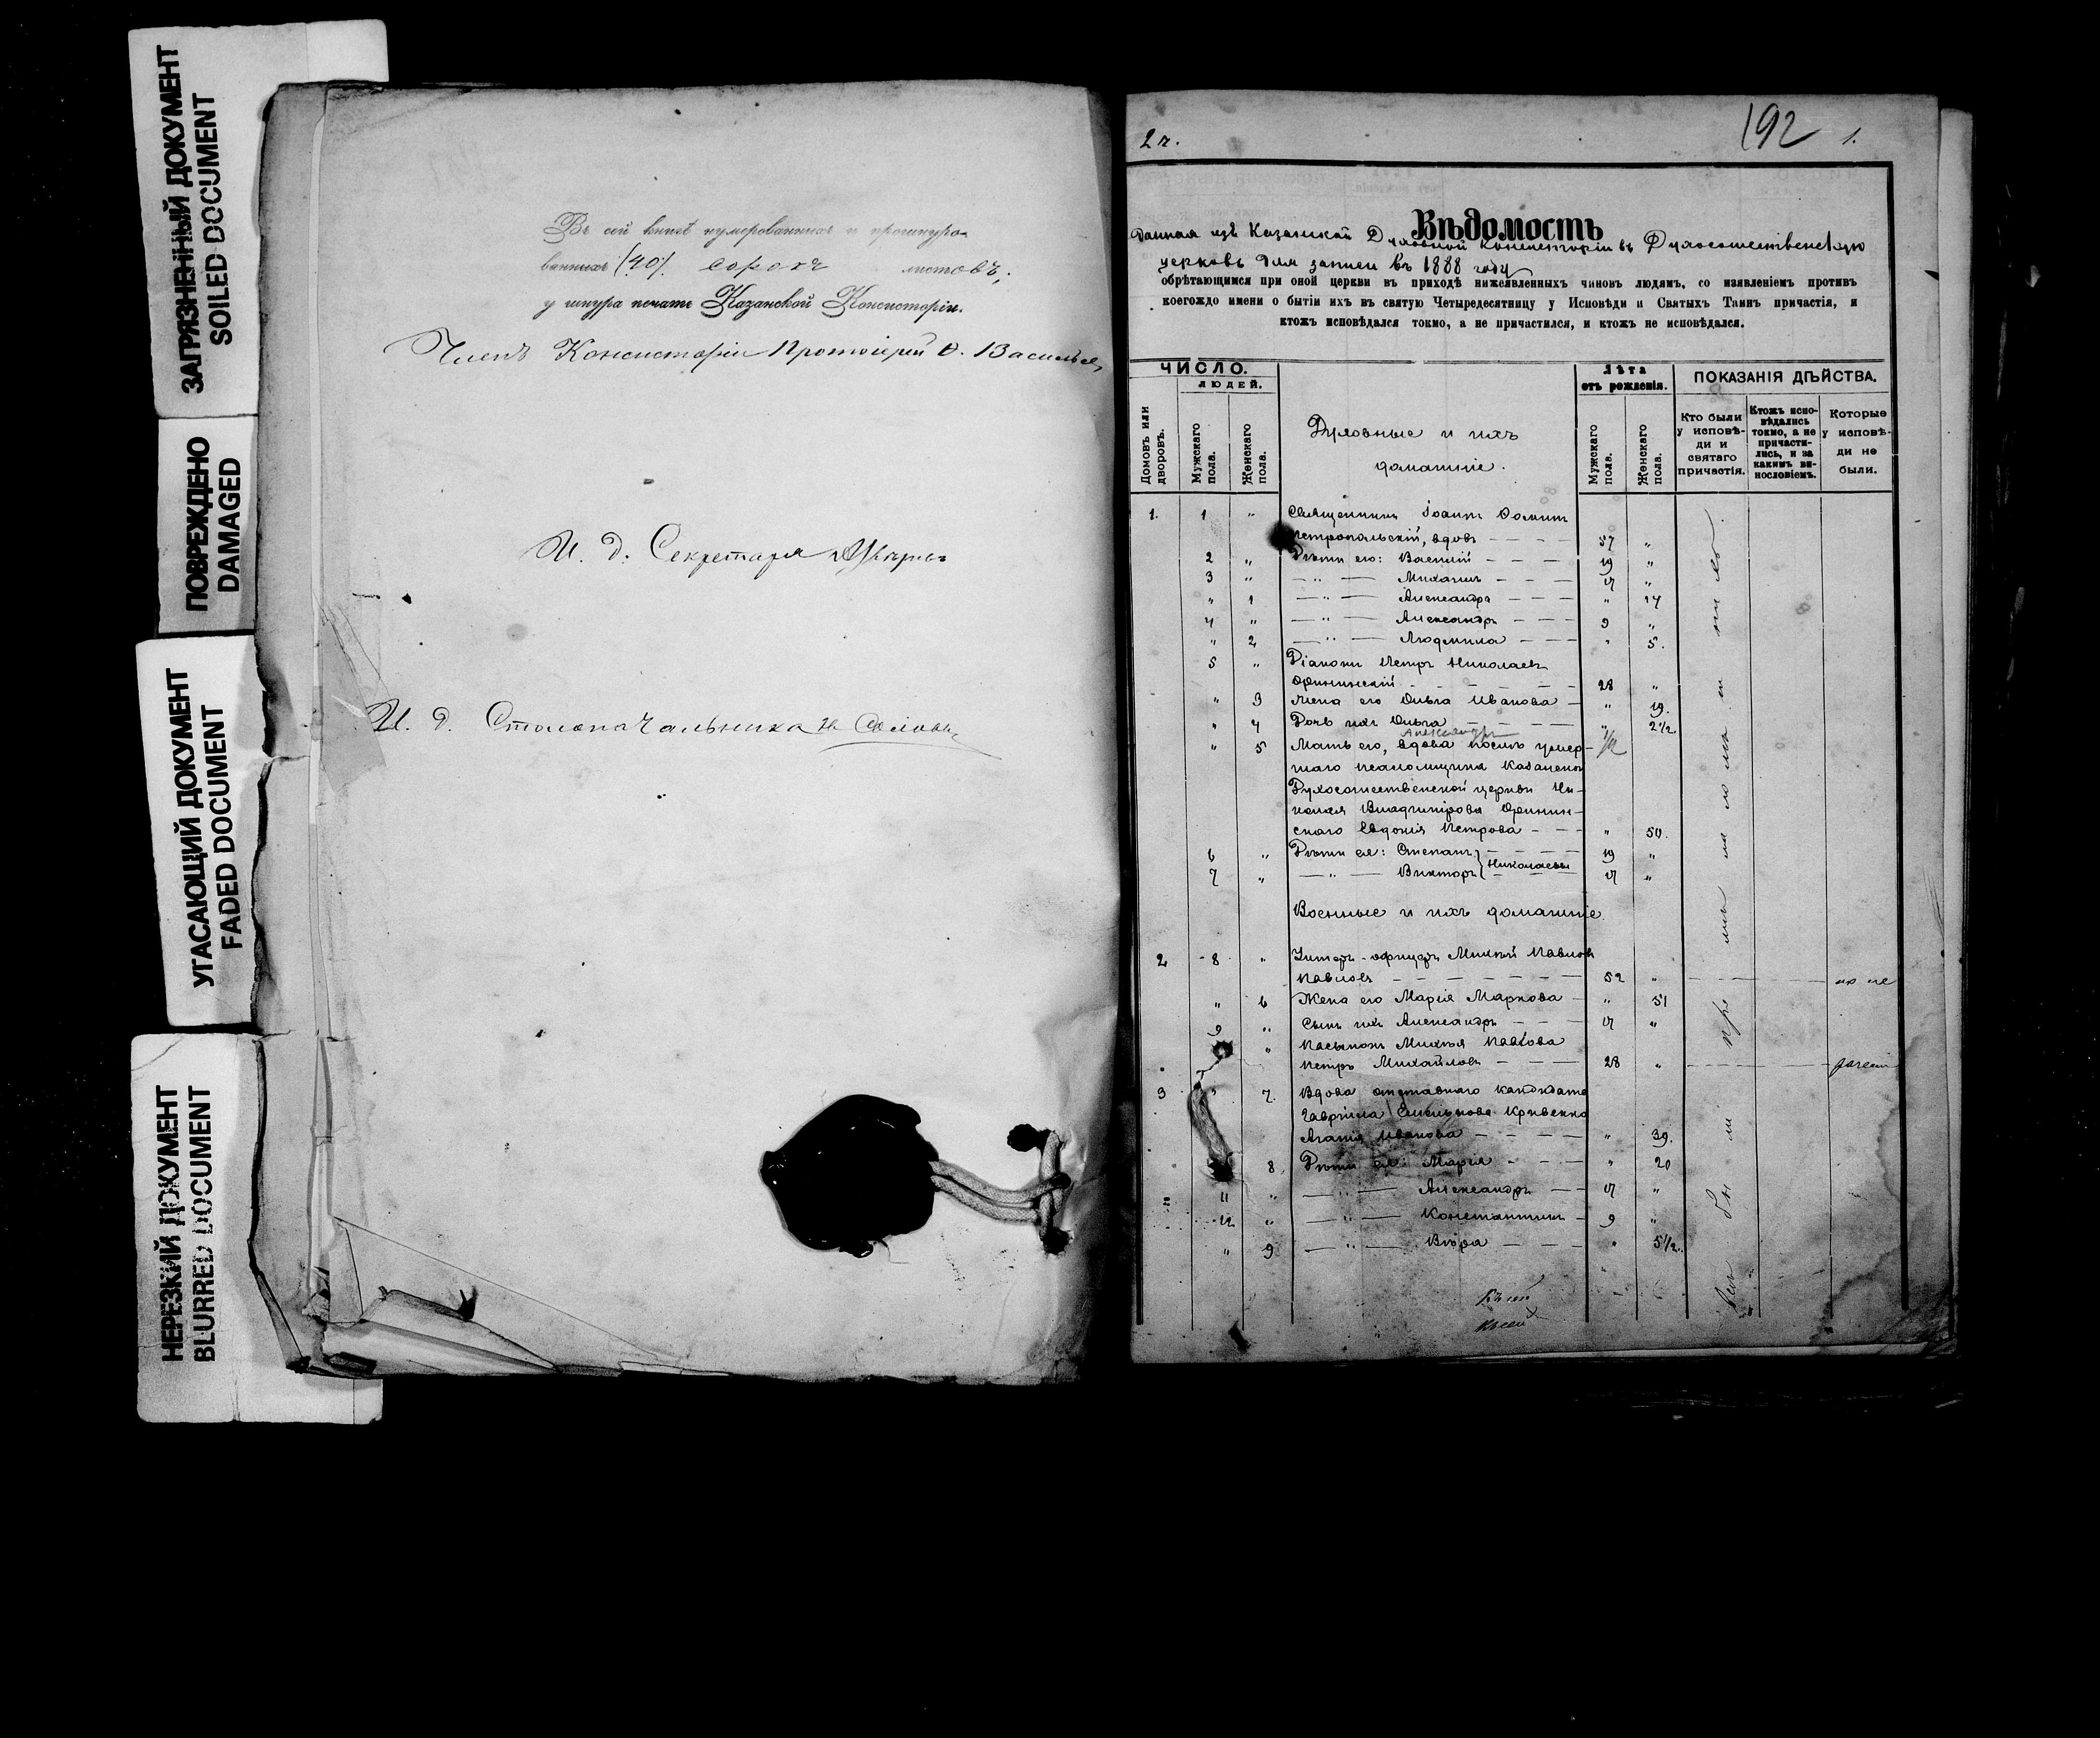 ЗАГРЯЗНЕННЫЙ ДОКУМЕНТ
SOILED DOCUMENT
ПОВРЕЖДЕНО
DAMAGED
УГАСАЮЩИЙ ДОКУМЕНТ
FADED DOCUMENT
НЕРЕЗКИЙ ДОКУМЕНТ
BLURRED DOCUMENT
Въ сей книгѣ нумерованныхъ и прошнуро-
ванныхъ (40) сорокъ листовъ,
у шнура печать Казанской Консисторіи.
Членъ Консисторіи Протоіерей
И. д. Секретаря
И. д. Столоначальника
192 1.
Вѣдомость
Данная изъ Казанской Духовной Консисторіи въ Духосошественскую
церковь для записи въ 1888 году
обрѣтающимся при оной церкви въ приходѣ нижеявленныхъ чиновъ людямъ, со изявленіемъ противъ
коегождо имени о бытіи ихъ въ святую Четыредесятницу у Исповѣди и Святыхъ Таинъ причастія, и
ктожъ исповѣдался токмо, а не причастился, и ктожъ не исповѣдался.
ЧИСЛО.
ЛЮДЕЙ.
Домовъ или дворовъ.
Мужскаго пола.
Женскаго пола.
Духовные и ихъ
домашніе.
Лѣта
отъ рожденія.
Мужскаго пола.
Женскаго пола.
ПОКАЗАНІЯ ДѢЙСТВА.
Кто были у исповѣ-ди и святаго причастія.
Ктожъ испо-вѣдались токмо, а не причасти-лись, и за какимъ ви-нословіемъ.
Которые у исповѣ-ди не были.
1. 1 " Священникъ Іоаннъ
Петропольскій, вдовъ 57 "
2 " Дѣти его: Василій 19 "
3 " — " — Михаилъ 17 "
" 1 — " — Александра " 14
4 " — " — Александръ 9 "
" 2 — " — Людмила " 5.
5 " Діаконъ Петръ Николаевъ
28 "
" 3 Жена его Ольга Иванова " 19.
" 4 Дочь ихъ Ольга " 2 1/2
Александръ 1/2
" 5 Мать его, вдова послѣ умер-
шаго псаломщика Казанской
Духосошественской церкви Ни-
колая Владимірова
Евдокія Петрова " 50.
6 " Дѣти ея: Степанъ } Николаевы 19 "
7 " — " — Викторъ 17 "
Военные и ихъ домашніе.
2 8 " Унтеръ-офицеръ Михаилъ Павловъ
Павловъ 52 "
" 6 Жена его Марія Маркова " 51
9 " Сынъ ихъ Александръ 17 "
" Пасынокъ Павлова
Петръ Михайловъ 28 "
3 " 7. Вдова отставнаго кандидата
Гавріила Емельянова Кривенко
Иванова " 39.
8 Дѣти ея: Марія " 20
11 " — " — Александръ 17 "
12 " — " — Константинъ 9 "
" 9 — " — Вѣра " 5 1/2.